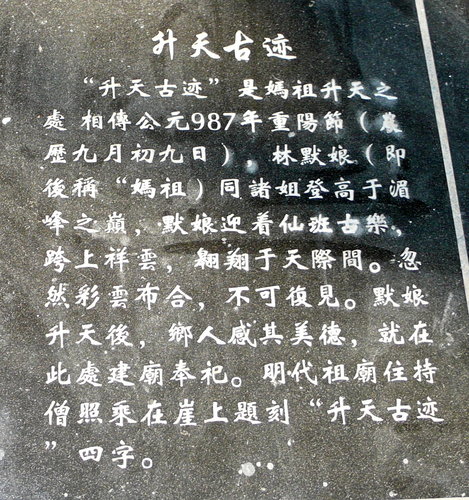 升天古迹
“升天古迹”是媽祖升天之
處 相傳公元987年重陽節（農
歷九月初九日），林默娘（即
後稱“媽祖）同諸姐登高于湄
峰之巔，默娘迎着仙班古樂，
跨上祥雲，翱翔于天際間。忽
然彩雲布合，不可復見。默娘
升天後，鄉人感其美德，就在
此處建廟奉祀。明代祖廟住持
僧照乘在崖上題刻“升天古迹
”四字。